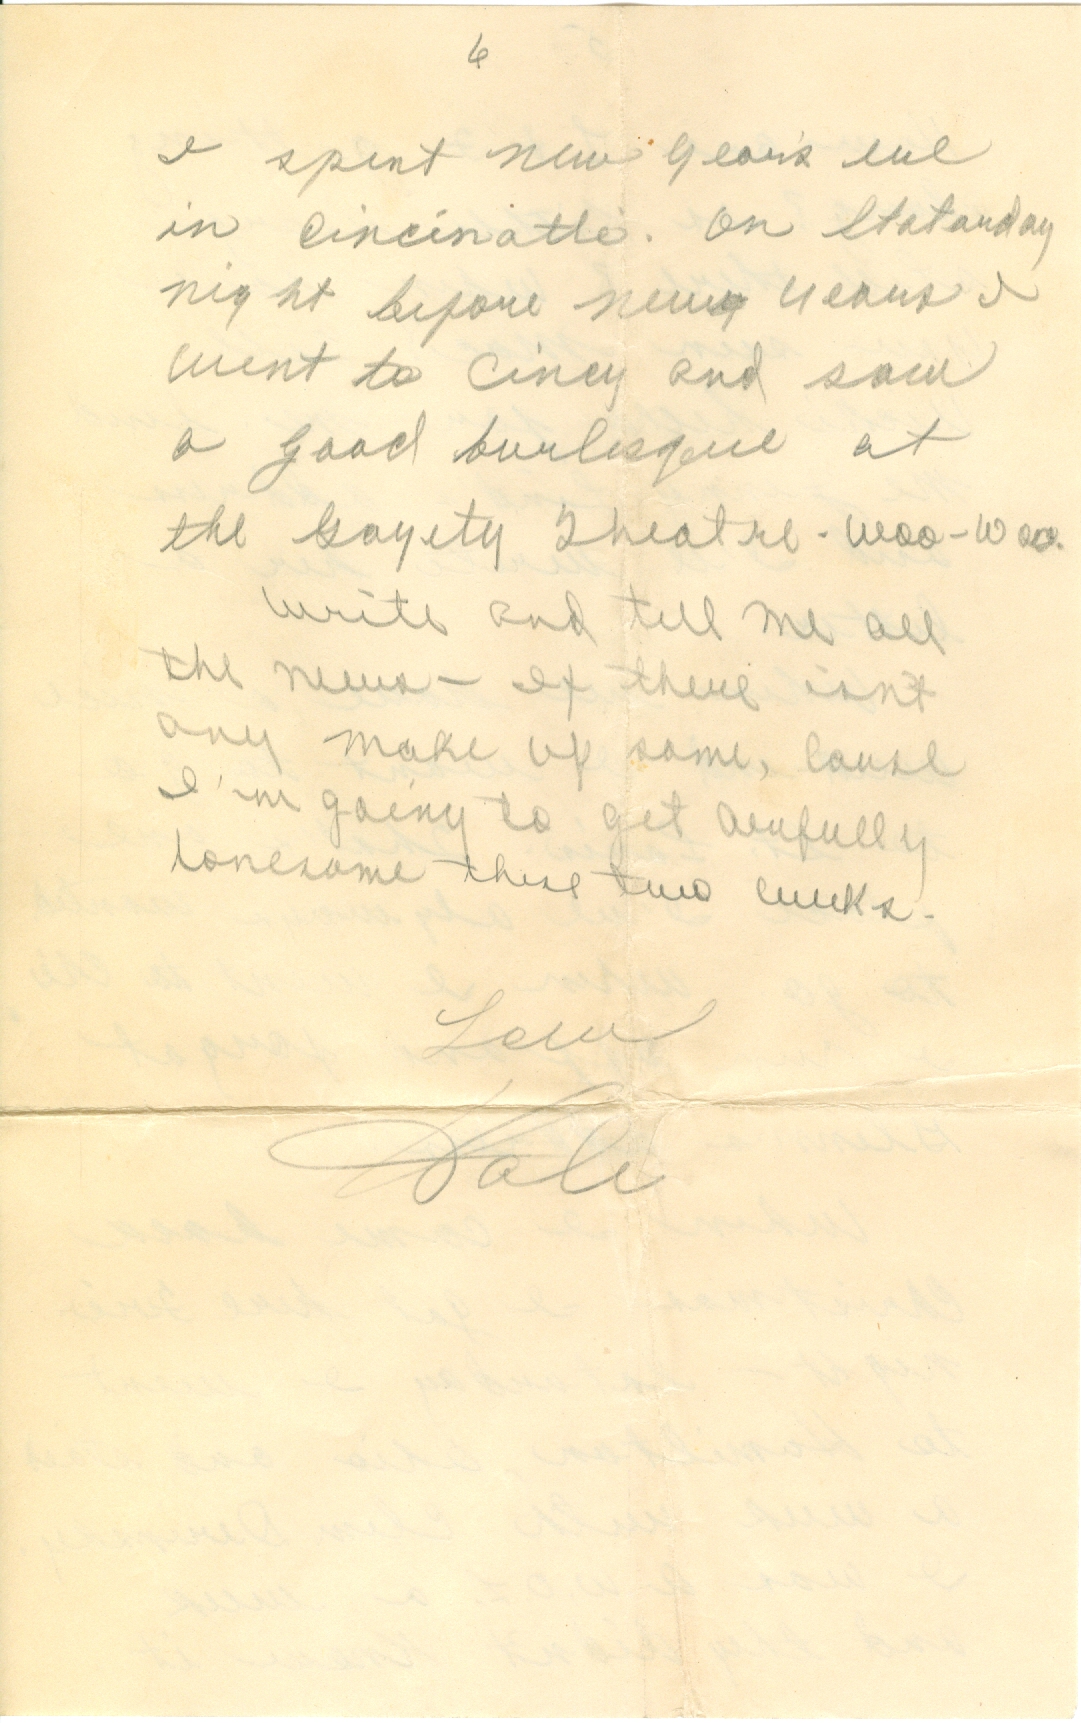 6
I spent New Year's eve
in Cincinatti. On Statarday
night before New Years I
went to Cincy and saw
a good burlesque at
the Gayety Theatre - Woo-Woo.
Write and tell me all
the news - If there isn't
any make up some, cause
I'm going to get awfully
lonesome these two weeks.
Love
Dale